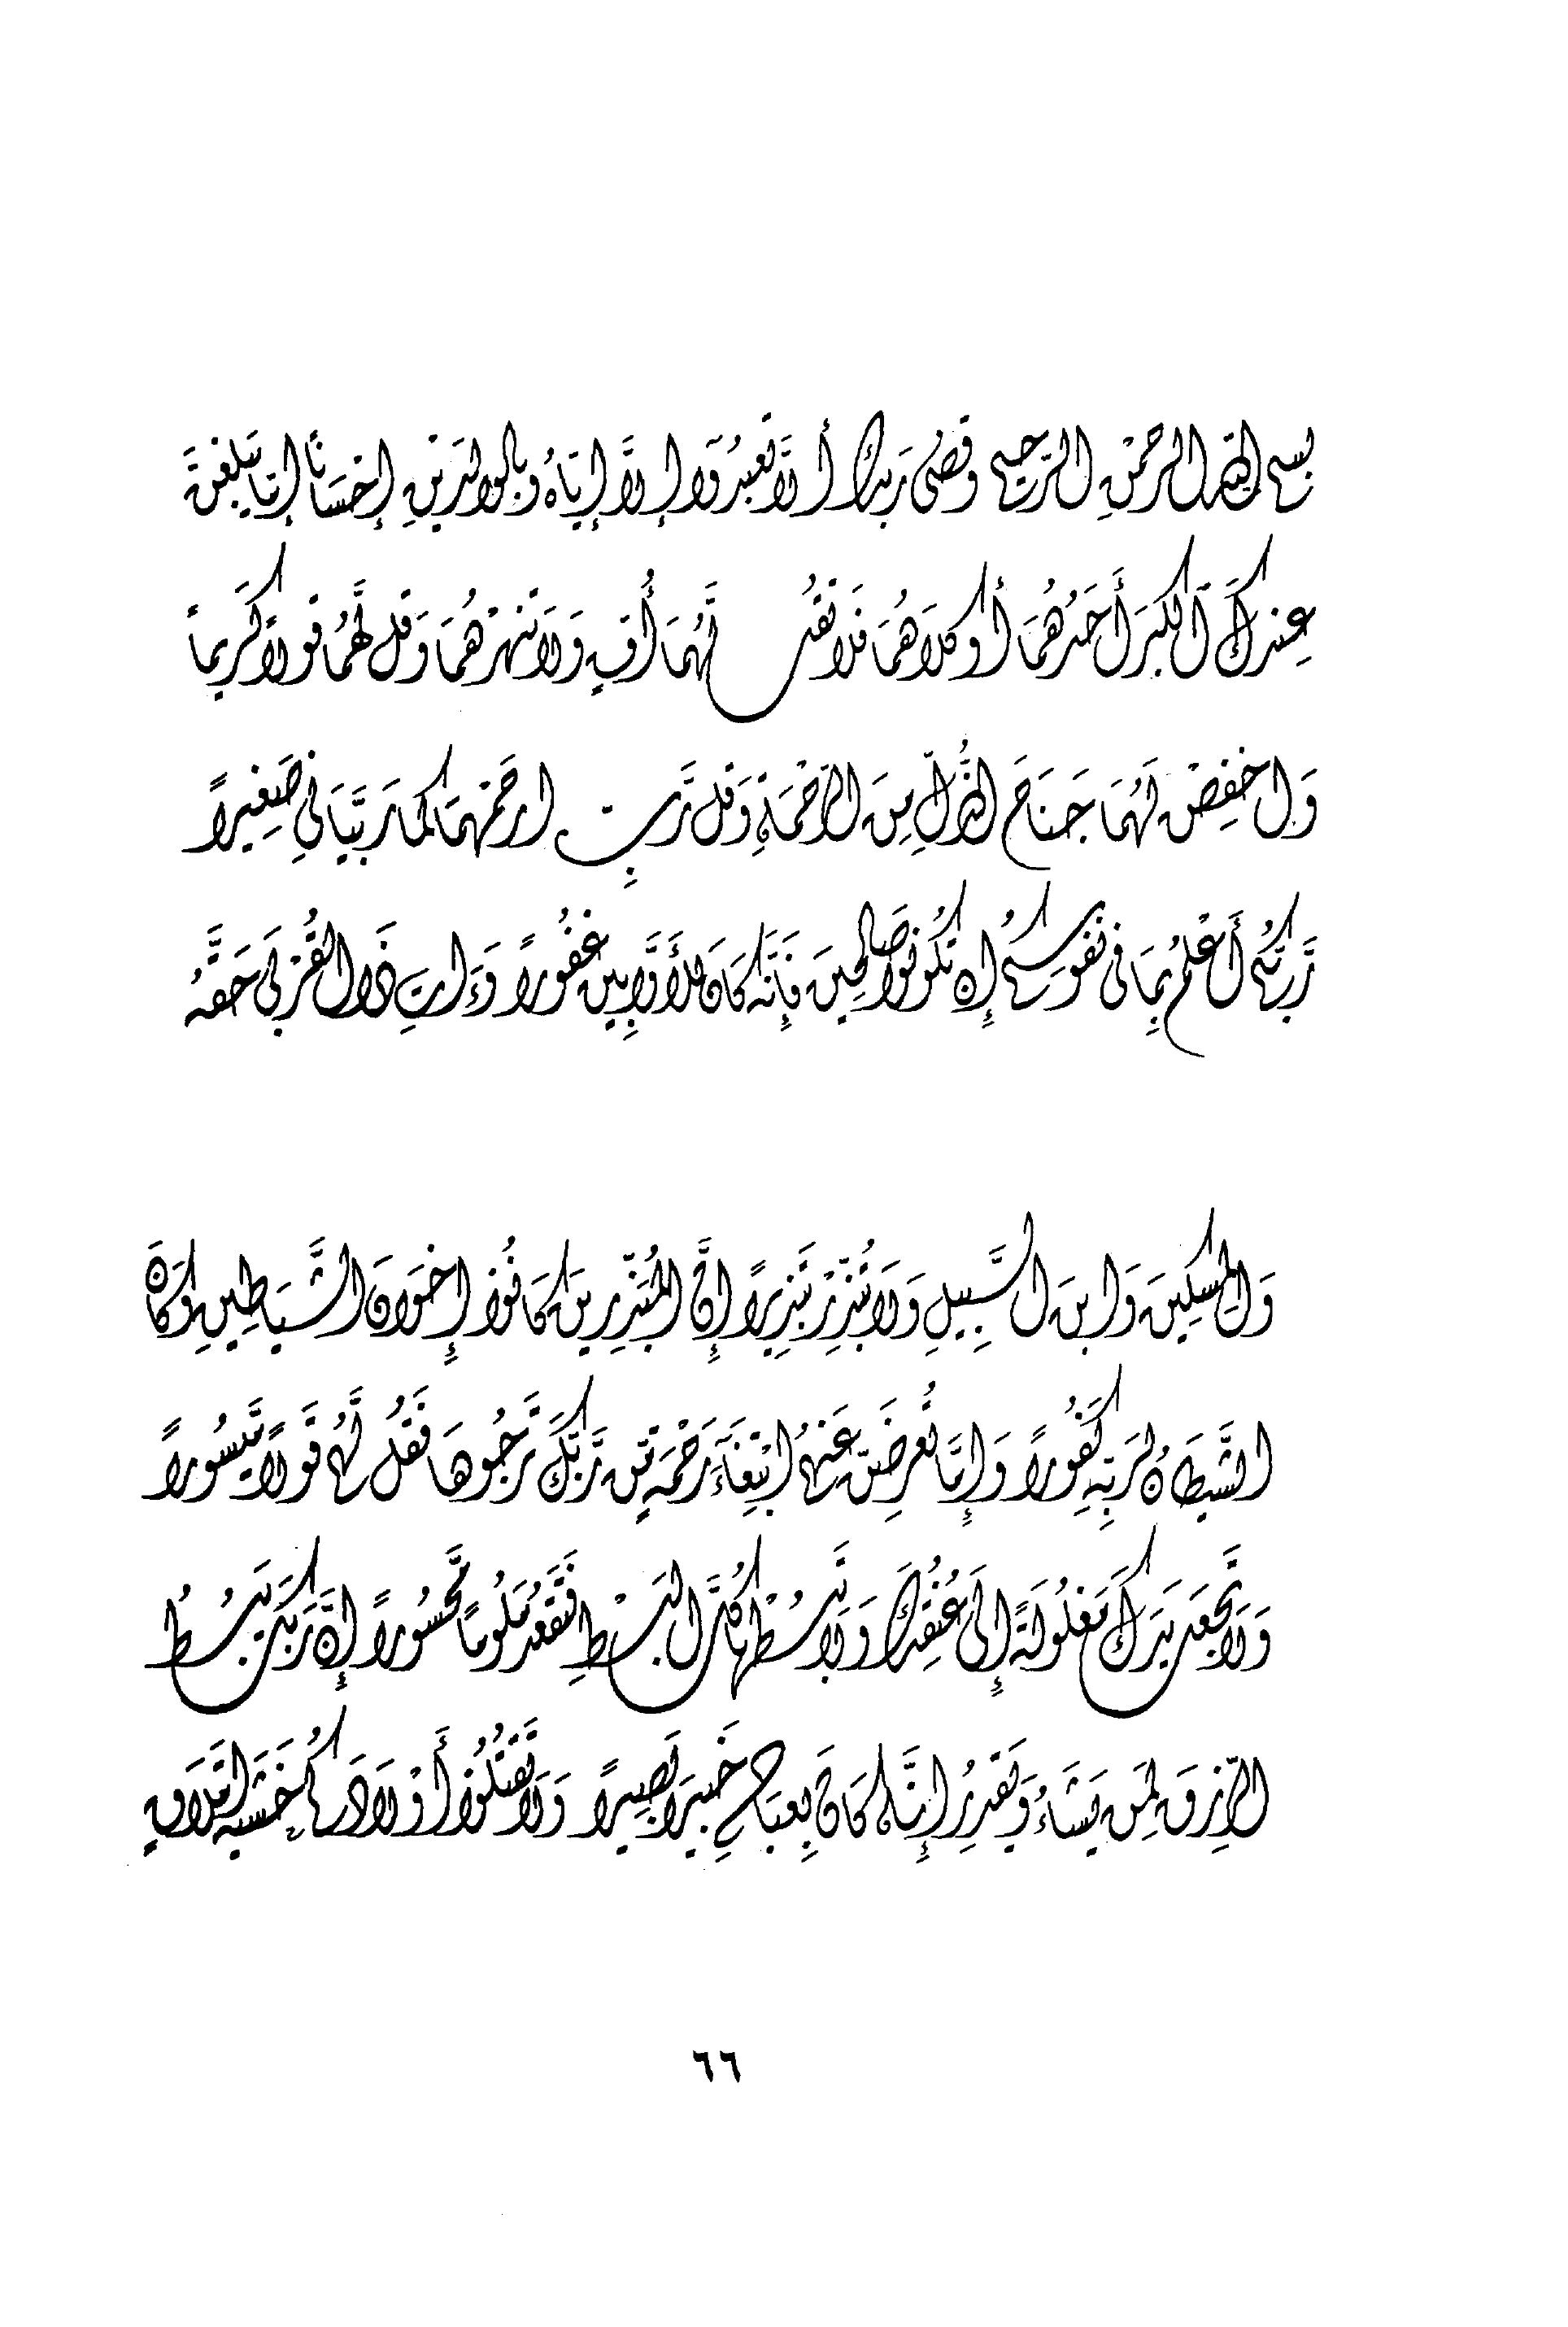 بسم الله الرحمٰنِ الرَّحيم وقَضى رَبك ألَّا تَعبدُوآ إلَّا إيَّاهُ وبالوالدَينِ إحْسَانًا إمَّا يَبلغنَّ
عِندكَ الكبرَ أحَدُهُمَا أو كلاهُمَا فَلا تقُل لَّهُمَا أُفٍ وَلَا تنهرْهُمَا وَقل لَّهُمَا قولاً كَريماً
وَاخفِضْ لَهُمَا جَنَاحَ الذُّلِّ مِنَ الرَّحْمَةِ وَقل رَّبِ ارحَمْهمَا كَمَا رَبَّيَانِي صَغِيراً
رَّبكُم أَعْلمُ بِمَا فى نفُوسِكُم إِن تَكُونُوا صَالِحِينَ فَإِنَّه كَانَ للأَوَّابِينَ غَفُوراً وَءَاتِ ذَا القُرْبَى حَقَّهُ
وَالمِسكِينَ وَابنَ السَّبِيلِ وَلَا تُبَذِّرْ تَبْذِيراً إِنَّ المُبَذِّرِينَ كَانُوا إِخوَانَ الشَّيَاطِينِ وَكَانَ
الشَّيطَانُ لِرَبِّهِ كَفُوراً وَإِمَّا تُعرِضَنَّ عَنهُمُ ابْتِغَآءَ رَحْمَةٍ مِّن رَّبِّكَ تَرجُوهَا فَقُل لَّهُم قَولاً مَّيسُوراً
وَلَا تَجعَل يَدَكَ مَغلُولَةً إِلَى عُنُقِكَ وَلَا تَبسُطْهَا كُلَّ البَسْطِ فَتَقعُدَ مَلُومًا مَّحسُوراً إِنَّ رَبَّكَ يَبسُطُ
الرِّزقَ لِمَن يَشَاءُ وَيَقدِرُ إِنَّهُ كَانَ بِعِبَادِهِ خَبِيرَا بَصِيراً وَلَا تَقتُلُوا أَوْلَادَكُم خَشيَةَ إِملَاقٍ
٦٦